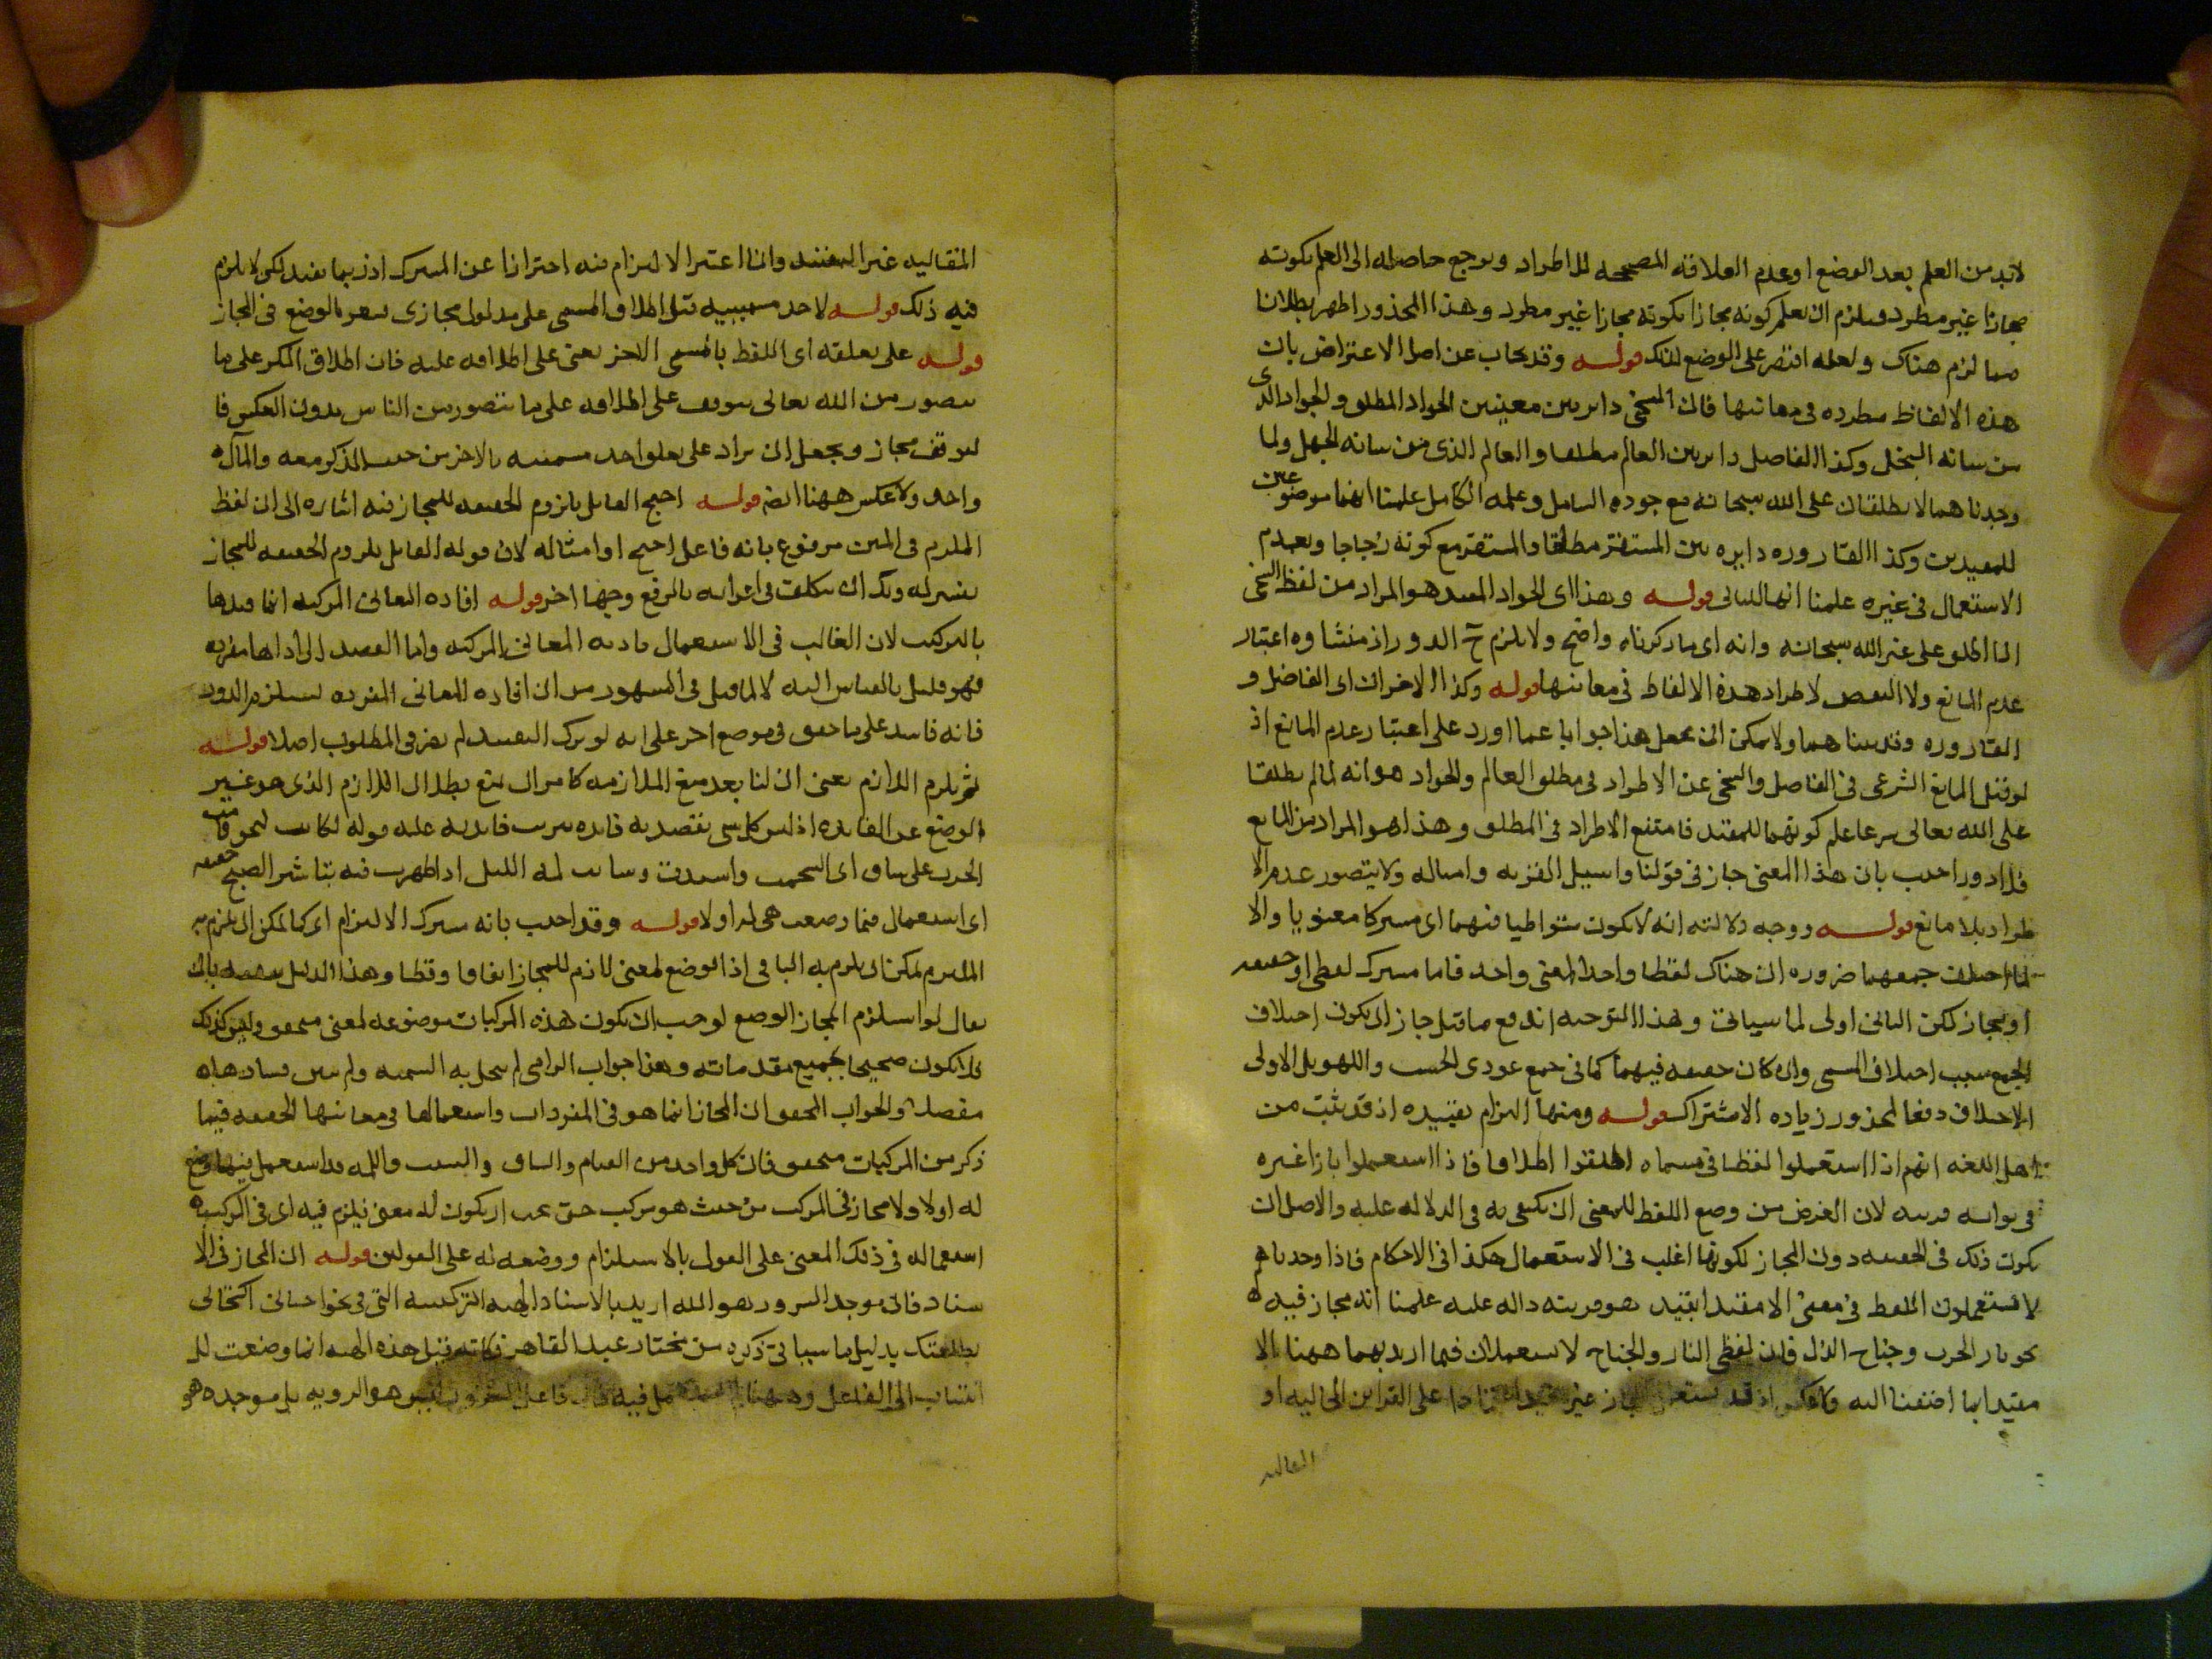 لابد من العلم بعد الوضع او عدم العلاقة المصححة للاطراد ويرجع حاصله الى العلم بكونه
مجازا غير مطرد فيلزم ان يعلم كونه مجازا بكونه مجازا غير مطرد وهذا المحذور اظهر بطلانا
مما لزم هناك ولعله اقتصر على الوضع لذلك قوله وقد يجاب عن اصل الاعتراض بان
هذه الالفاظ مطرده في معانيها فان السخى داير بين معنيين الجواد المطلق والجواد الذى
من شانه البخل وكذا الفاضل داير بين العالم مطلقا والعالم الذى من شانه الجهل ولما
وجدناهما لا يطلقان على الله سبحانه مع جوده الشامل وعلمه الكامل علمنا انهما موضوعين
للمقيدين وكذا القاروره دايره بين المستقر مطلقا والمستقر مع كونه زجاجا وبعدم
الاستعمال في غيره علمنا انها للثانى قوله وهذا اى الجواد المقيد هو المراد من لفظ السخى
اذا اطلق على غير الله سبحانه وانه اى ما ذكرناه واضح ولا يلزم ح الدور اذ منشاوه اعتبار
عدم المانع ولا النقص لاطراد هذه الالفاظ في معانيها قوله وكذا الاخران اى الفاضل و
القاروره وقد بيناهما ولا يمكن ان يجعل هذا جوابا عما اورد على اعتبار عدم المانع اذ
لو قيل المانع الشرعى في الفاضل والسخى عن الاطراد في مطلق العالم والجواد هو انه لما لم يطلقا
على الله تعالى شرعا علم كونهما للمقيد فامتنع الاطراد في المطلق وهذا هو المراد من المانع
فلا دور اجيب بان هذا المعنى جار في قولنا واسئل القريه وامثاله ولا يتصور عدم الا
طراد بلا مانع قوله ووجه دلالته انه لا يكون متواطيا فيهما اى مشتركا معنويا والا
لما اختلف جمعهما ضروره ان هناك لفظا واحدا لمعنى واحد فاما مشترك لفظى او حقيقه
او مجاز لكن الثانى اولى لما سياتى وبهذا التوجيه اندفع ما قيل جاز ان يكون اختلاف
الجمع بسبب اختلاف المسمى وان كان حقيقه فيهما كما في جمع عودى الخشب واللهو بل الاولى
الاختلاف دفعا لمحذور زياده الاشتراك قوله ومنها التزام تقييده اذ قد ثبت من
اهل اللغه انهم اذا استعملوا لفظا في مسماه اطلقوا اطلاقا فاذا استعملوا بازا غيره
قرنوا به قرينه لان الغرض من وضع اللفظ للمعنى ان يكتفى به في الدلاله عليه والاصل ان
يكون ذلك في الحقيقه دون المجاز لكونها اغلب في الاستعمال هكذا في الاحكام فاذا وجدناهم
لا يستعملون اللفظ في معنى الا مقيدا بقيد هو قرينه داله عليه علمنا انه مجاز فيه
نحو نار الحرب وجناح الذل فان لفظى النار والجناح لا يستعملان فيما اريد بهما ههنا الا
مقيدا بما اضفنا اليه ولا عكس اذ قد يستعمل المجاز غير مقيد اعتمادا على القراين الحاليه او
المقاليه
المقاليه غير المقيده وانما اعتبر الالتزام فيه احترازا عن المشترك اذ ربما يقيد لكن لا يلزم
فيه ذلك قوله لاحد مسمييه قيل اطلاق المسمى على مدلول مجازى يشعر بالوضع في المجاز
قوله على تعلقه اى اللفظ بالمسمى الاخر يعنى على اطلاقه عليه فان اطلاق المكر على ما
يتصور من الله تعالى يتوقف على اطلاقه على ما يتصور من الناس بدون العكس فا
لمتوقف مجاز ويحتمل ان يراد على تعلق احد مسمييه بالاخر من حيث الذكر معه والمآل
واحد ولا عكس ههنا ايضا قوله احتج القايل بلزوم الحقيقه للمجاز فيه اشاره الى ان لفظ
الملزم في المتن مرفوع بانه فاعل احتج او امثاله لان قوله القايل بلزوم الحقيقه للمجاز
تفسير له ولك ان تتكلف في اعرابه بالرفع وجها اخر قوله افاده المعانى المركبه انما قيدها
بالتركيب لان الغالب في الاستعمال تاديه المعانى المركبه واما القصد الى اداها مفرده
فهو قليل بالقياس اليه لا لما قيل في المشهور من ان افاده المعانى المفرده يستلزم الدور
فانه فاسد على ما حقق في موضع اخر على انه لو ترك التقييد لم يضر في المطلوب اصلا قوله
ثم يلزم اللازم يعنى ان لنا بعد منع الملازمه كما مر ان نمنع بطلان اللازم الذى هو غير
الوضع عن الفايده اذ ليس كل شى يقصد به فايده يترتب فايدته عليه قوله لكان لنحو قامت
الحرب على ساق اى التحمت واشتدت وشابت لمه الليل اذا ظهرت فيه تباشير الصبح حقيقه
اى استعمال فيما وضعت هى له اولا قوله وقد اجيب بانه مشترك الالزام اى كما يمكن ان يلزم به
الملتزم يمكن ان يلزم به النافى اذ الوضع لمعنى لازم للمجاز اتفاقا وقطعا وهذا الدليل بعينه بان
يقال لو استلزم المجاز الوضع لوجب ان يكون هذه المركبات موضوعه لمعنى متحقق وليس كذلك
فلا يكون صحيحا بجميع مقدماته وهذا جواب الزامى لم ينحل به الشبهه ولم يتبين فسادها
مفصلا والجواب المحقق ان المجاز انما هو في المفردات واستعمالها في معانيها الحقيقه فيما
ذكر من المركبات متحقق فان كل واحد من القيام والساق والشيب واللمه قد استعمل فيما وضع
له اولا ولا مجاز في المركب من حيث هو مركب حتى يجب ان يكون له معنى فيلزم فيه اى في المركب
استعماله في ذلك المعنى على القول بالاستلزام ووضعه له على القولين قوله ان المجاز في الا
سناد فانى موجد السرور هو الله اريد بالاسناد الهيئه التركيبيه التى في نحو احيانى اكتحالى
بطلعتك بدليل ما سياتى ذكره من مختار عبد القاهر فكانه قيل هذه الهيئه انما وضعت لل
انتساب الى الفاعل وههنا فيه فان فاعل السرور ليس هو الرويه بل موجده هو